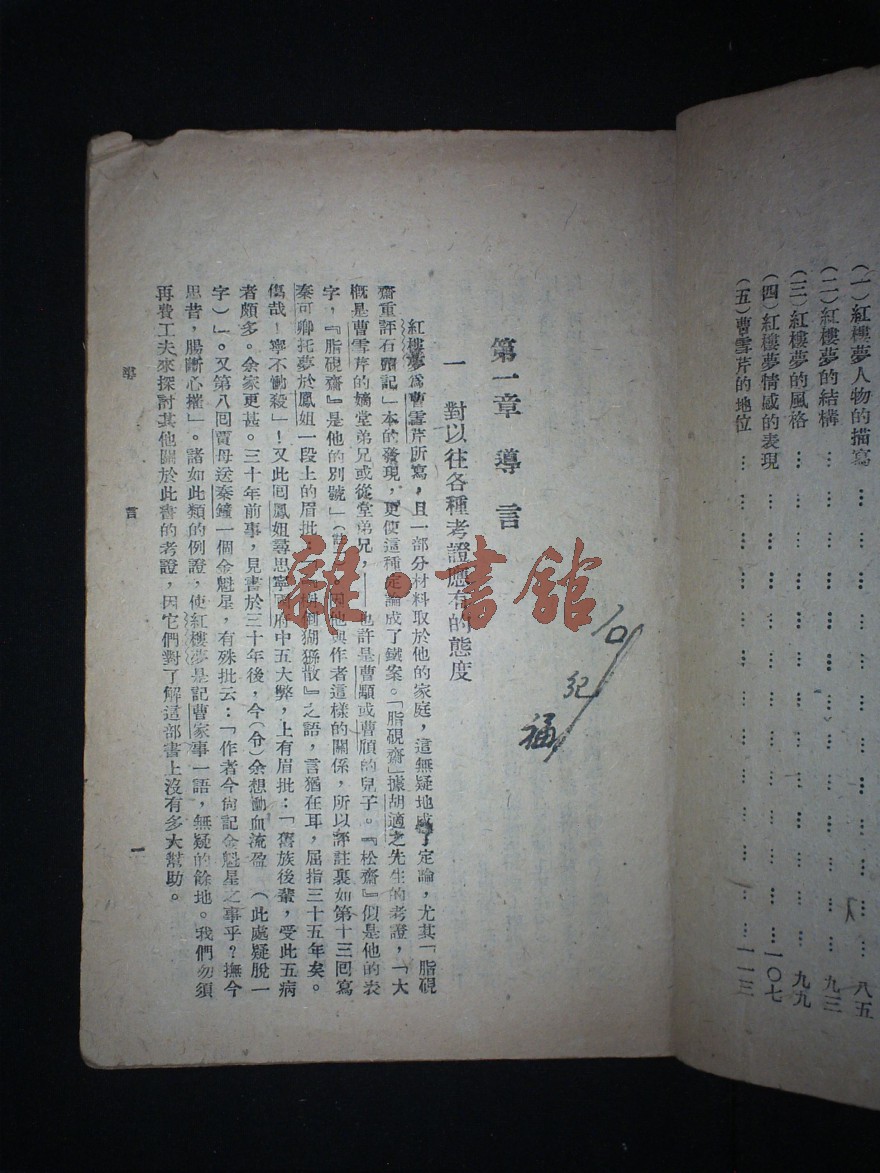 (一)紅樓夢人物的描寫……………………八五
(二)紅樓夢的結構……………………九三
(三)紅樓夢的風格……………………九九
(四)紅樓夢情感的表現……………………一〇七
(五)曹雪芹的地位……………………一一三
第一章 導言
一 對以往各種考證應有的態度
紅樓夢爲曹雪芹所寫,且一部分材料取於他的家庭,這無疑地成了定論,尤其「脂硯
齋重評石頭記」本的發現,更使這種定論成了鐵案。「脂硯齋」據胡適之先生的考證,「大
槪是曹雪芹的嫡堂弟兄或從堂弟兄,——也許是曹顒或曹頎的兒子。『松齋』似是他的表
字,『脂硯齋』是他的別號」因他與作者這樣的關係,所以評註裏如第十三囘寫
秦可卿托夢於鳳姐一段上的眉批:倒猢猻散』之語,言猶在耳,屈指三十五年矣。
傷哉!寧不慟殺」!又此囘鳳姐尋思寧國府中五大弊,上有眉批:「舊族後輩,受此五病
者頗多。余家更甚。三十年前事,見書於三十年後,今(令)余想慟血流盈 (此處疑脫一
字)」。又第八囘賈母送秦鐘一個金魁星,有殊批云:「作者今尙記金魁星之事乎?撫今
思昔,腸斷心摧」。諸如此類的例證,使紅樓夢是記曹家事一語,無疑的餘地。我們勿須
再費工夫來探討其他關於此書的考證,因它們對了解這部書上沒有多大幫助。
導 言
一
紀
福
雜·書館